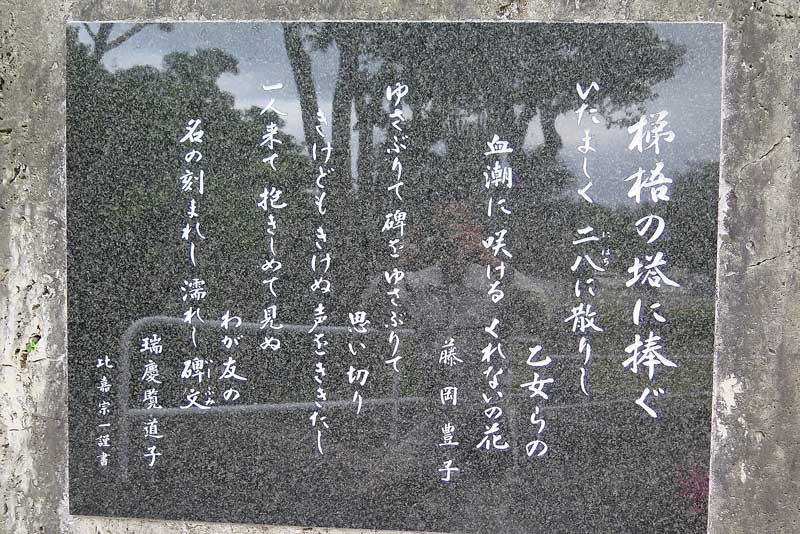 梯梧の塔に捧ぐ
いたましく 二八に散りし
にはち
乙女らの
血潮に咲ける くれないの花
藤岡豊子
ゆさぶりて碑をゆさぶりて
思い切り
きけどもきけぬ 声をききたし
一人来て 抱きしめて見ぬ
わが友の
名の刻まれし 濡れし碑文
いしぶみ
瑞慶覧道子
比嘉宗一謹書